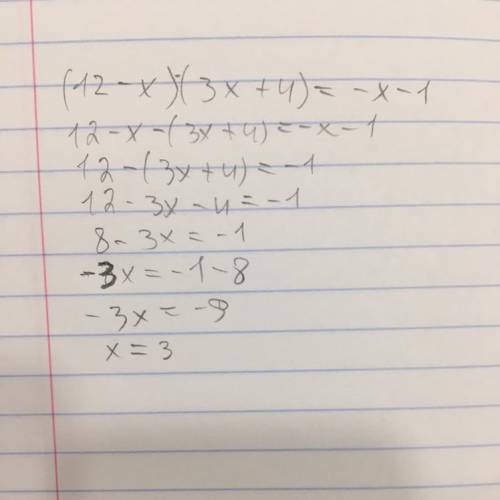 (12-x)-(3x+4)=-x-1
12-x-(3x+4)=-x-1
12-(3x+4)=-1
12-3x-4=-1
8-3x=-1
-3x=-1-8
-3x=-9
x=3